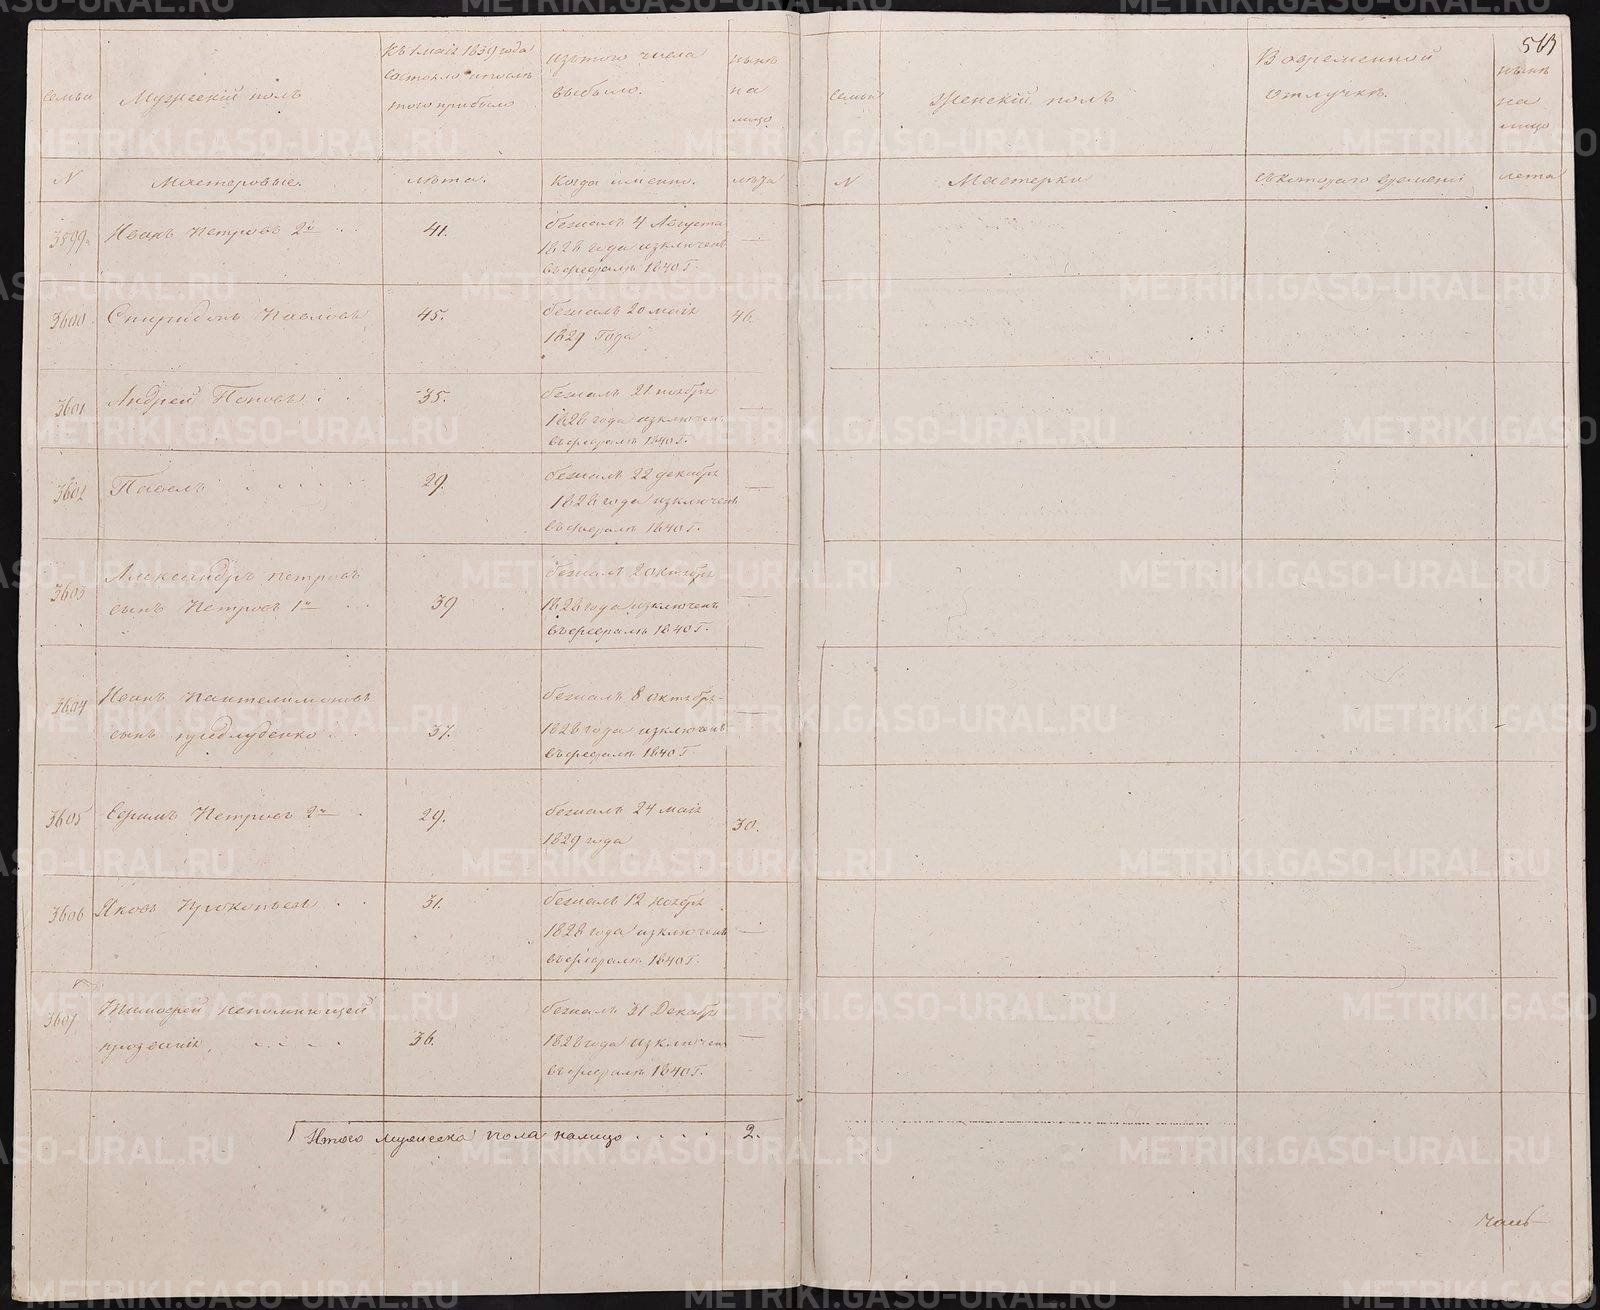 513
семьи
Мужескій полъ
Къ 1 маія 1839 года
состояло и послѣ
того прибыло
изъ того числа
выбыло.
нынѣ
на
лицо
семьи
Женскій полъ
Во временной
отлучкѣ.
нынѣ
на
лицо
N
Мастеровые.
лѣта.
когда именно.
лѣта
N
Мастерки
съ котораго времени
лета
3599.
Иванъ Петровъ 2й
41.
бежалъ 4 Августа
1828 года изключенъ
въ февралѣ 1840 г.
—
3600
Спиридонъ Павловъ
45.
бежалъ 20 маія
1829 года
46.
3601
Андрей Поповъ
35.
бежалъ 21 ноября
1828 года изключенъ
въ февралѣ 1840 г.
—
3602
Павелъ
29.
бежалъ 22 декабря
1828 года изключенъ
въ февралѣ 1840 г.
—
3603
Александръ Петровъ
сынъ Петровъ 1й
39
бежалъ 2 октября
1828 года изключенъ
въ февралѣ 1840 г.
—
3604
Иванъ Пантелимоновъ
сынъ
37.
бежалъ 8 октября
1828 года изключенъ
въ февралѣ 1840 г.
—
3605
Ефимъ Петровъ 2й
29.
бежалъ 24 маія
1829 года
30.
3606
Яковъ Прокопьевъ
31.
бежалъ 12 ноября
1828 года изключенъ
въ февралѣ 1840 г.
—
3607
Тимофей непомнющей
прозвания
36.
бежалъ 31 Декабря
1828 года изключенъ
въ февралѣ 1840 г.
—
Итого мужеска пола налицо . . . . 2.
METRIKI.GASO-URAL.RU